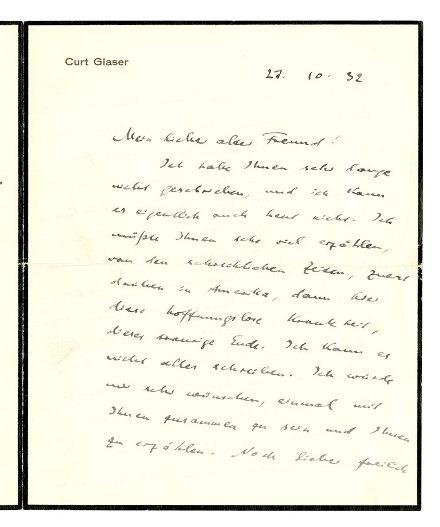 Curt Glaser
27. 10. 32
Mein lieber alter Freund!
Ich habe Ihnen sehr lange
nicht geschrieben, und ich kann
es eigentlich auch heut nicht. Ich
müßte Ihnen sehr viel erzählen,
von den schrecklichen Zeiten, zuerst
drüben in Amerika, dann hier
diese hoffnungslose Krankheit,
dieses traurige Ende. Ich kann es
nicht alles schreiben. Ich würde
mir sehr wünschen, einmal mit
Ihnen zusammen zu sein und Ihnen
zu erzählen. Noch lieber freilich